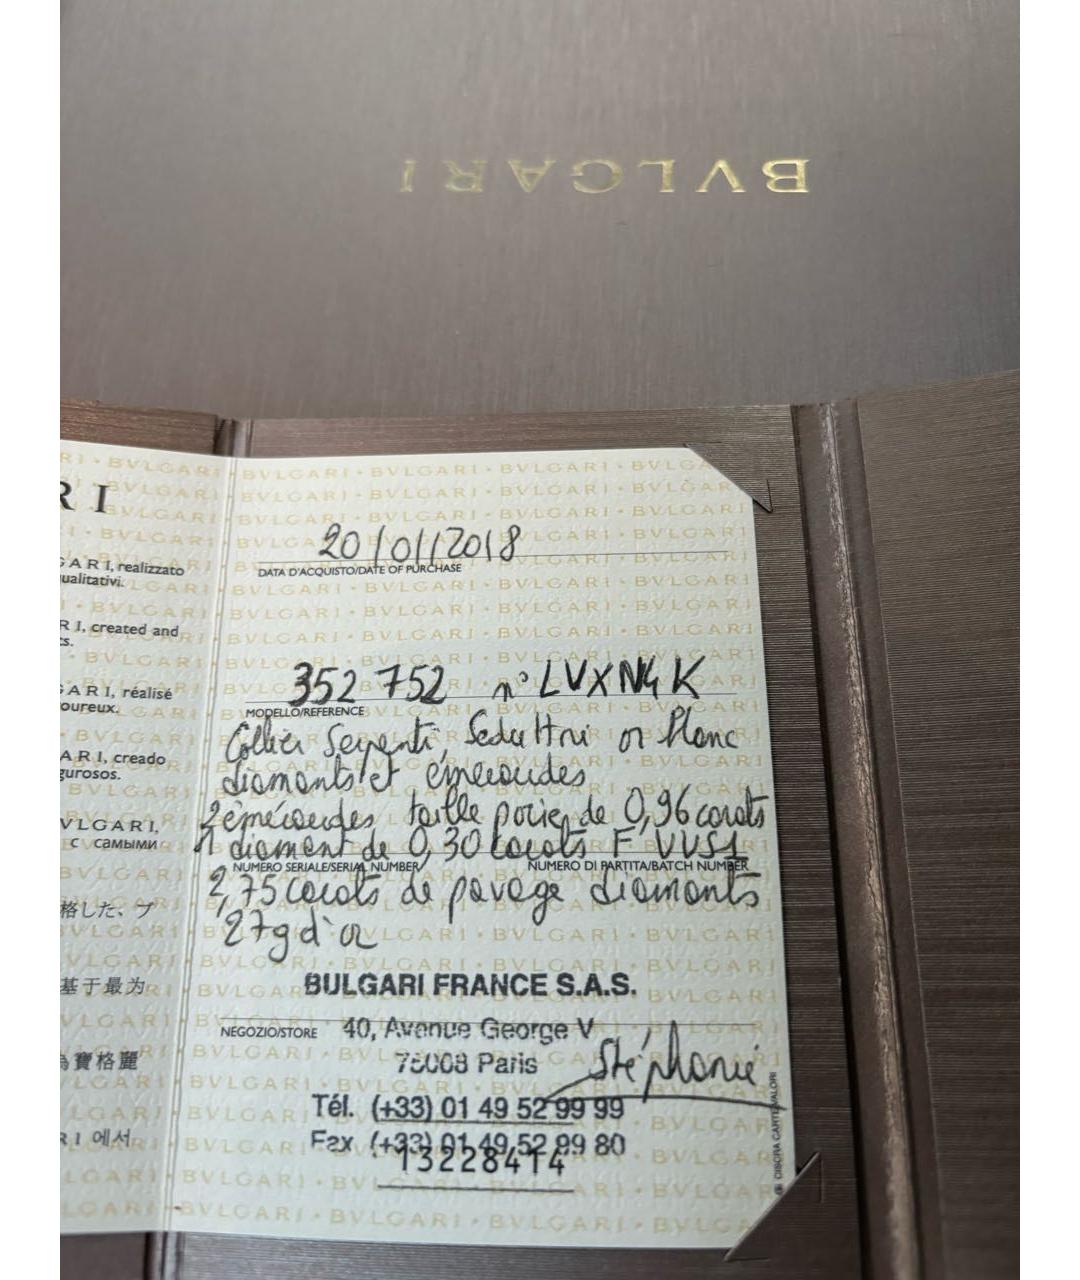 BVLGARI
RI
GARI, realizzato
ualitativi.
RI, created and
ts.
GARI, réalisé
oureux.
ARI, creado
gurosos.
VLGARI,
с самыми
格した、ブ
基于最为
為寶格麗
RI 에서
20/01/2018
DATA D'ACQUISTO/DATE OF PURCHASE
352752 n° LVXN4K
MODELLO/REFERENCE
Collier Serpenti, Seduttori or blanc
diamants et émeraudes
2 émeraudes taille poire de 0,96 carats
1 diamant de 0,30 carats F VVS1
NUMERO SERIALE/SERIAL NUMBER NUMERO DI PARTITA/BATCH NUMBER
2,75 carats de pavage diamants
27g d'or
BULGARI FRANCE S.A.S.
NEGOZIO/STORE 40, Avenue George V
75008 Paris
Stéphanie
Tél. (+33) 01 49 52 99 99
Fax (+33) 01 49 52 99 80
13228414
CISCRA CARTEVALORI